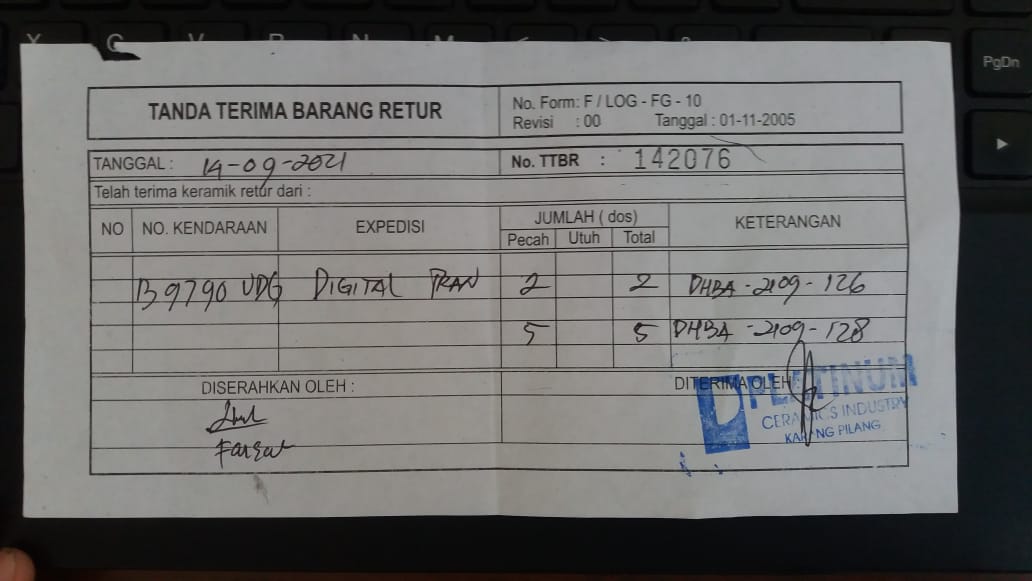 TANDA TERIMA BARANG RETUR
No. Form: F / LOG - FG - 10
Revisi : 00 Tanggal : 01-11-2005
TANGGAL : 14-09-2021 No. TTBR : 142076
Telah terima keramik retur dari :
NO NO. KENDARAAN EXPEDISI JUMLAH ( dos) KETERANGAN
Pecah Utuh Total
B 9790 UDG DIGITAL TRAN 2 2 DHBA - 2109 - 126
5 5 DHBA - 2109 - 128
DISERAHKAN OLEH : DITERIMA OLEH
PLATINUM
CERAMICS INDUSTRY
KARANG PILANG
PgDn